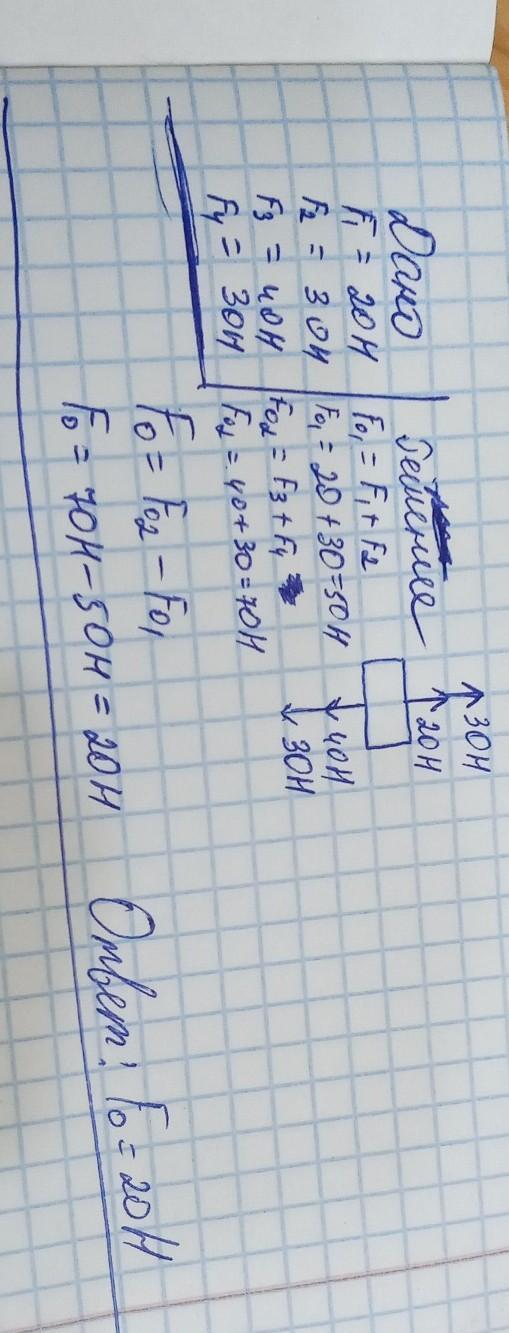 Дано
F1 = 20Н
F2 = 30Н
F3 = 40Н
F4 = 30Н
Решение
F01 = F1 + F2
F01 = 20 + 30 = 50Н
F02 = F3 + F4
F02 = 40 + 30 = 70Н
F0 = F02 - F01
F0 = 70Н - 50Н = 20Н
30Н
20Н
40Н
30Н
Ответ: F0 = 20Н